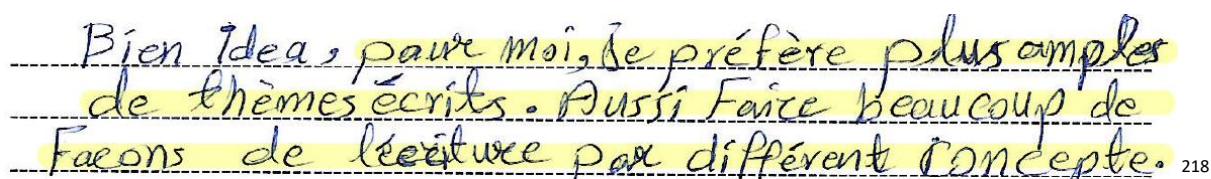 Bien Idea, paure moi, Je préfère plus amples
de thèmes écrits. Aussi Faire beaucoup de
Facons de lécriture par différent Concepte. 218